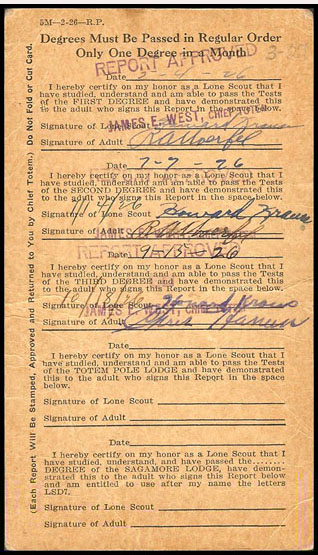 5M—2-26—R.P.
Degrees Must Be Passed in Regular Order
Only One Degree in a Month.
REPORT APPROVED
Date
I hereby certify on my honor as a Lone Scout that I
have studied, understand and am able to pass the Tests
of the FIRST DEGREE and have demonstrated this
to the adult who signs this Report in the space below.
JAMES E. WEST, CHIEF TOTEM
Signature of Lone Scout
Signature of Adult
Date 7-7 26
I hereby certify on my honor as a Lone Scout that I
have studied, understand and am able to pass the Tests
of the SECOND DEGREE and have demonstrated this
to the adult who signs this Report in the space below.
Signature of Lone Scout Howard
Signature of Adult
REPORT APPROVED
Date 9-15-26
I hereby certify on my honor as a Lone Scout that I
have studied, understand and am able to pass the Tests
of the THIRD DEGREE and have demonstrated this
to the adult who signs this Report in the space below.
JAMES E. WEST, CHIEF
Signature of Lone Scout
Signature of Adult
Date
I hereby certify on my honor as a Lone Scout that I
have studied, understand and am able to pass the Tests
of the TOTEM POLE LODGE and have demonstrated
this to the adult who signs this Report in the space
below.
Signature of Lone Scout
Signature of Adult
Date
I hereby certify on my honor as a Lone Scout that I
have studied, understand, and have passed the........
DEGREE of the SAGAMORE LODGE, have demon-
strated this to the adult who signs this Report below
and am entitled to use after my name the letters
LSD7.
Signature of Lone Scout
Signature of Adult
(Each Report Will Be Stamped, Approved and Returned to You by Chief Totem.) Do Not Fold or Cut Card.